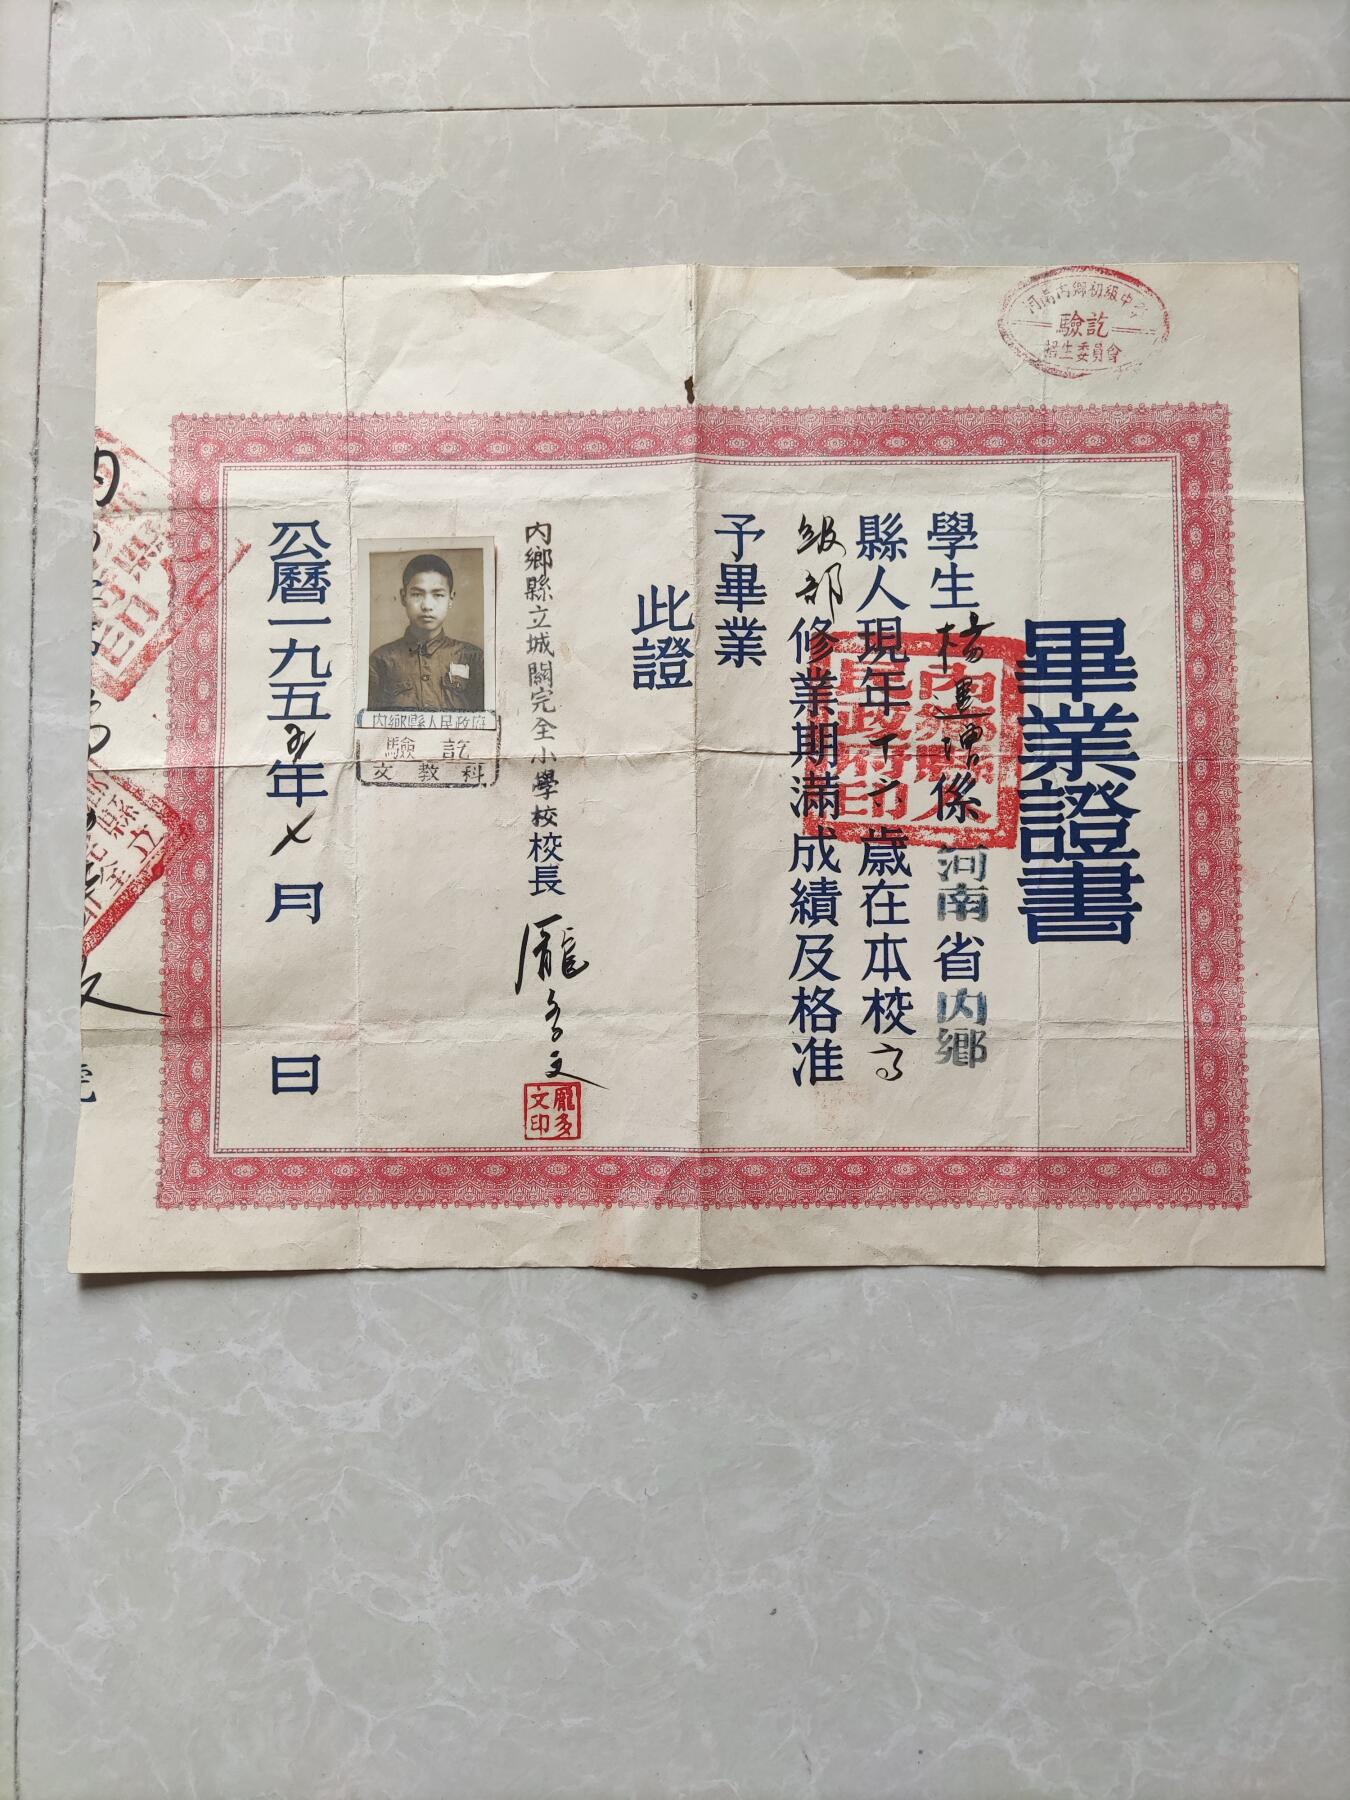 河南內鄉初級中學
驗訖
招生委員會
畢業證書
學生楊 增係河南省內鄉
縣人現年十六歲在本校高
級部修業期滿成績及格准
予畢業
此證
內鄉縣人民政府印
內鄉縣立城關完全小學校校長龐多文
龐多文印
內鄉縣人民政府
驗訖
文教科
公曆一九五五年七月 日